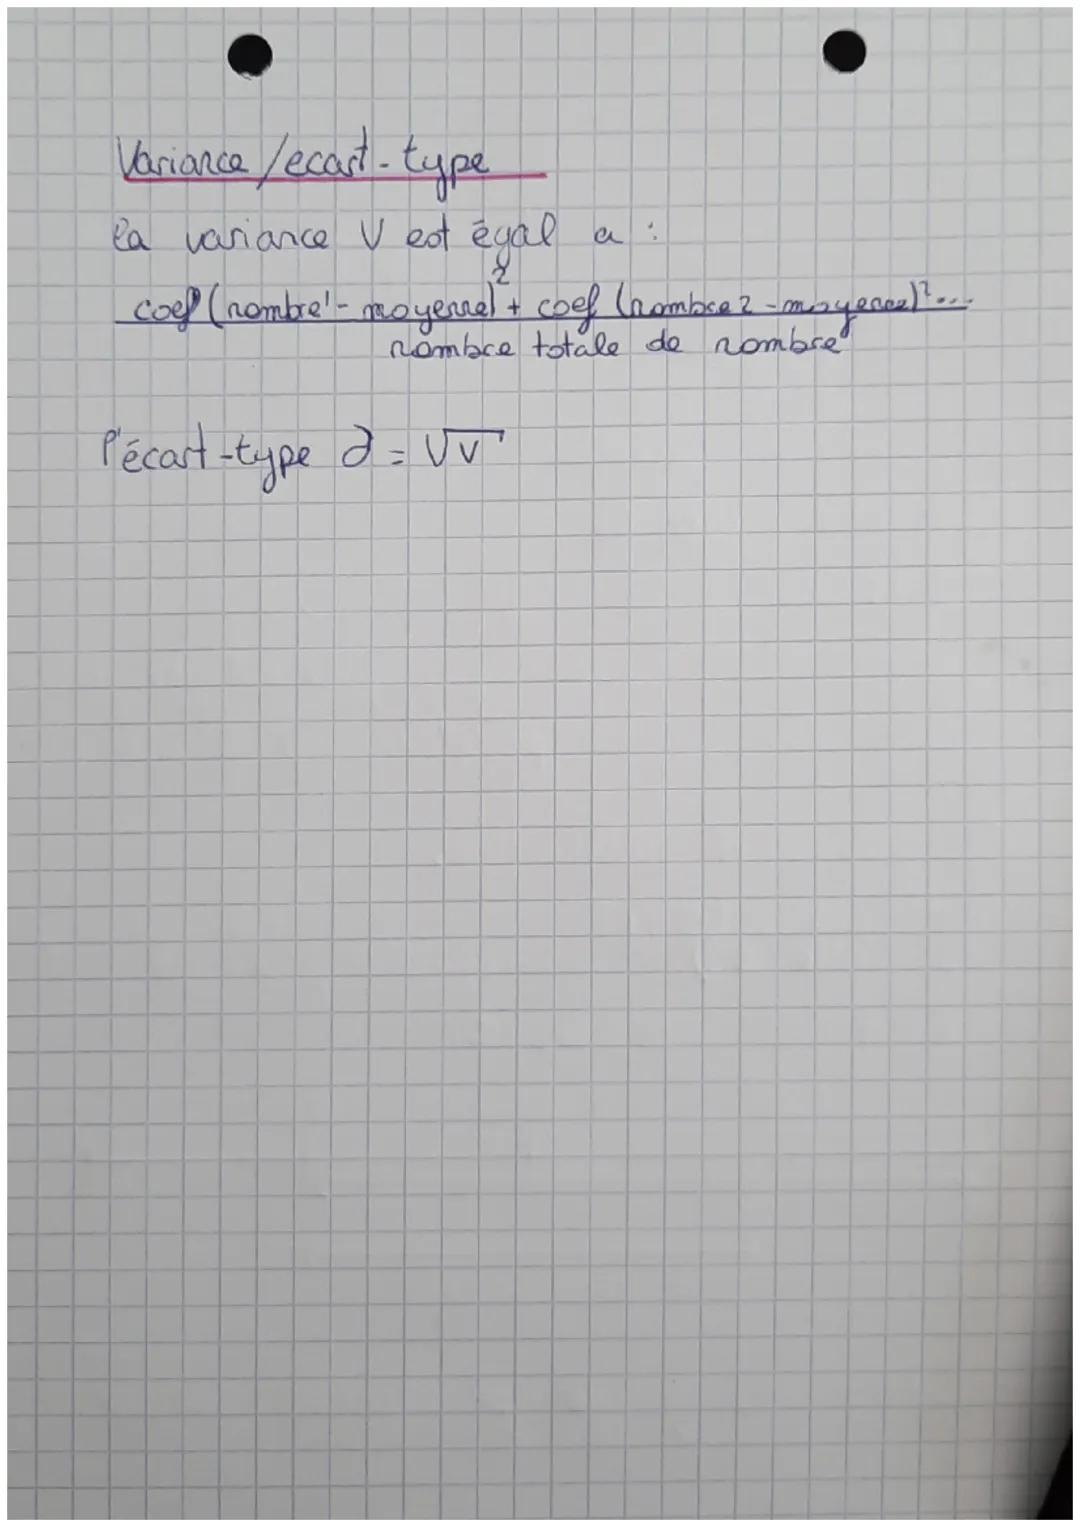 Variance/ecart-type
la variance V est égal a :
coef (nombre1 - moyenne)² + coef (nombre 2 - moyenne)²...
nombre totale de nombre
l'écart-type ∂ = √V